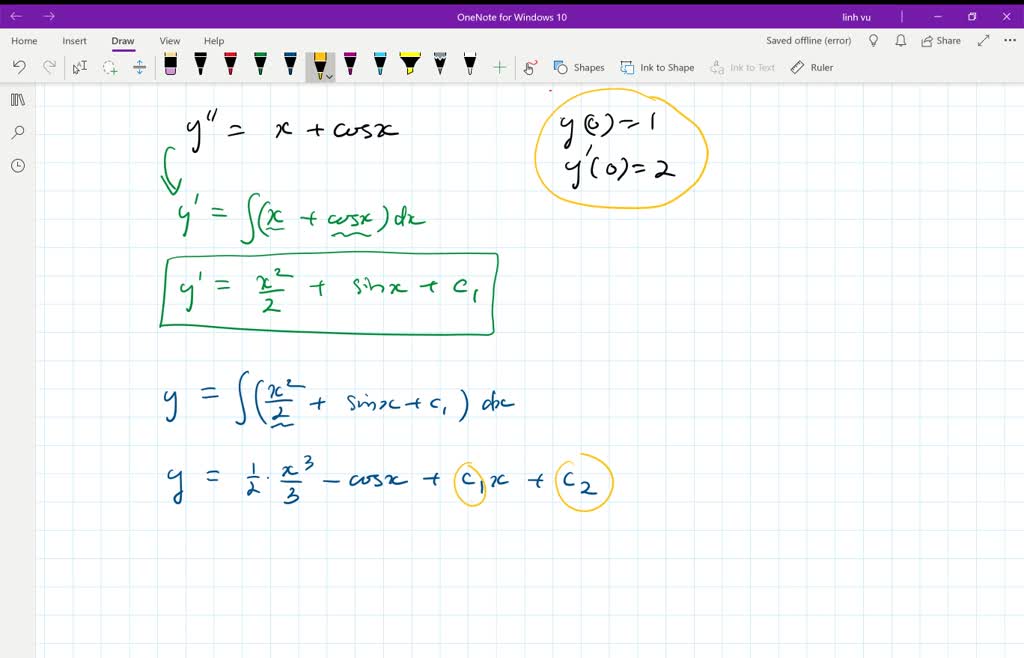 OneNote for Windows 10
linh vu
Home Insert Draw View Help
Saved offline (error) Share
Shapes Ink to Shape Ink to Text Ruler
y'' = x + cosx
y(0) = 1
y'(0) = 2
y' = ∫(x + cosx) dx
y' = x²/2 + sinx + c₁
y = ∫(x²/2 + sinx + c₁) dx
y = 1/2 · x³/3 - cosx + c₁x + c₂